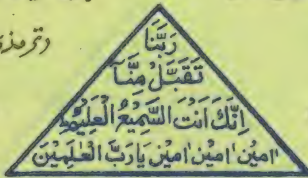 وترمذی
رَبَّنَا
تَقَبَّلْ مِنَّآ
اِنَّكَ اَنْتَ السَّمِيْعُ الْعَلِيْمُ
اٰمِيْن اٰمِيْن اٰمِيْن يَارَبَّ الْعٰلَمِيْنَ